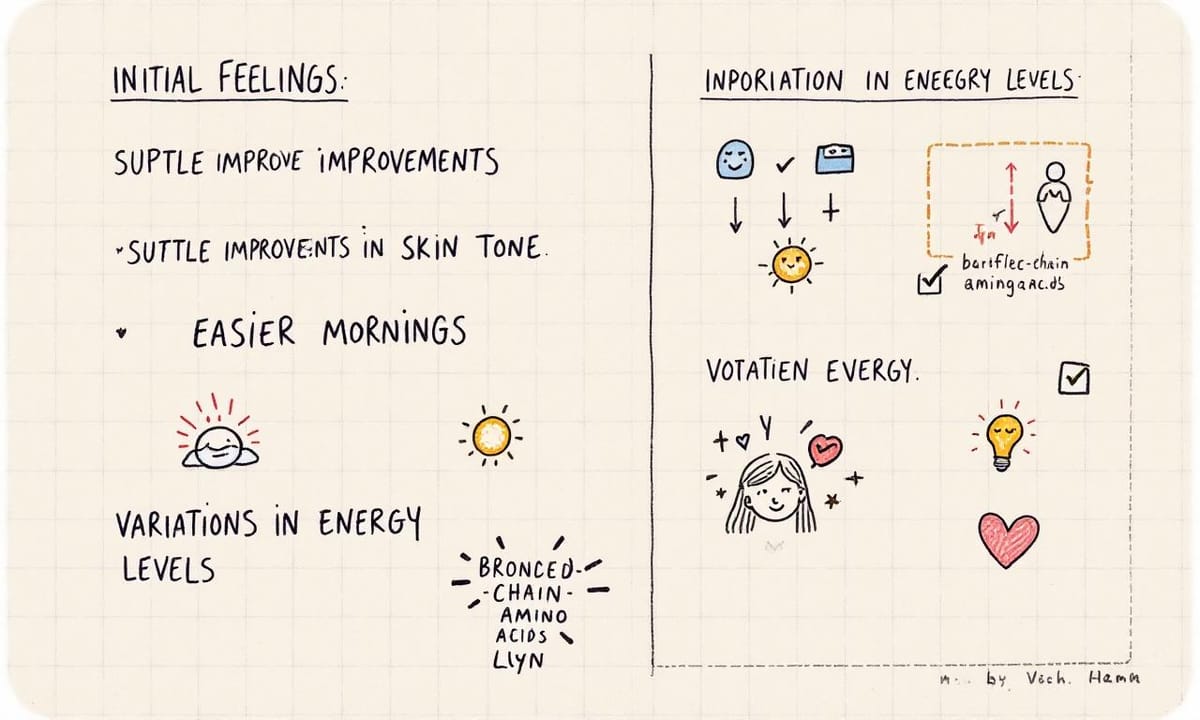 INITIAL FEELINGS:
SUPTLE IMPROVE IMPROVEMENTS
SUTTLE IMPROVENTS IN SKIN TONE.
EASIER MORNINGS
VARIATIONS IN ENERGY
LEVELS
BRONCED-
-CHAIN-
AMINO
ACIDS
LIYN
INPORIATION IN ENEEGRY LEVELS
bariflec-chain
amingaac.ds
VOTATIEN EVERGY.
by Vech. Hamn